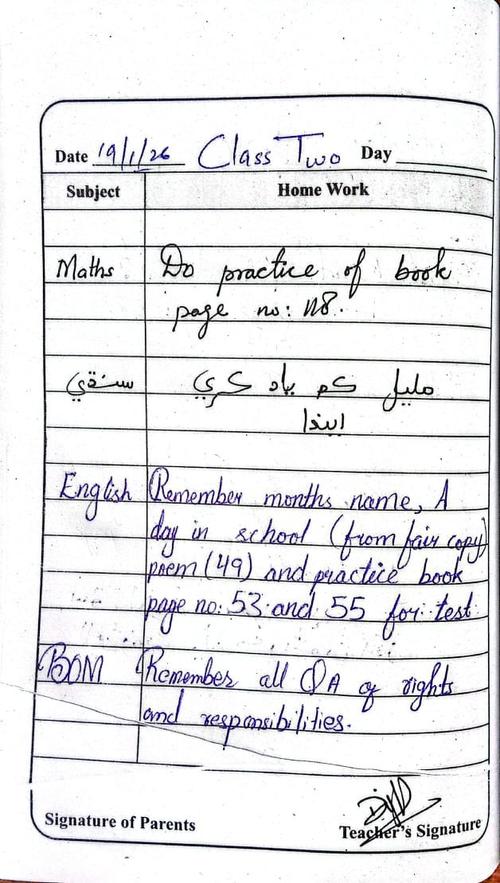 Date 19/1/26 Class Two Day
Subject Home Work
Maths Do practice of book
page no: 118.
سنڌي مليل ڪم ياد ڪري
ايندا
English Remember months name, A
day in school (from fair copy)
poem (49) and practice book
page no: 53 and 55 for test
BOM Remember all QA of rights
and responsibilities.
Signature of Parents Teacher's Signature